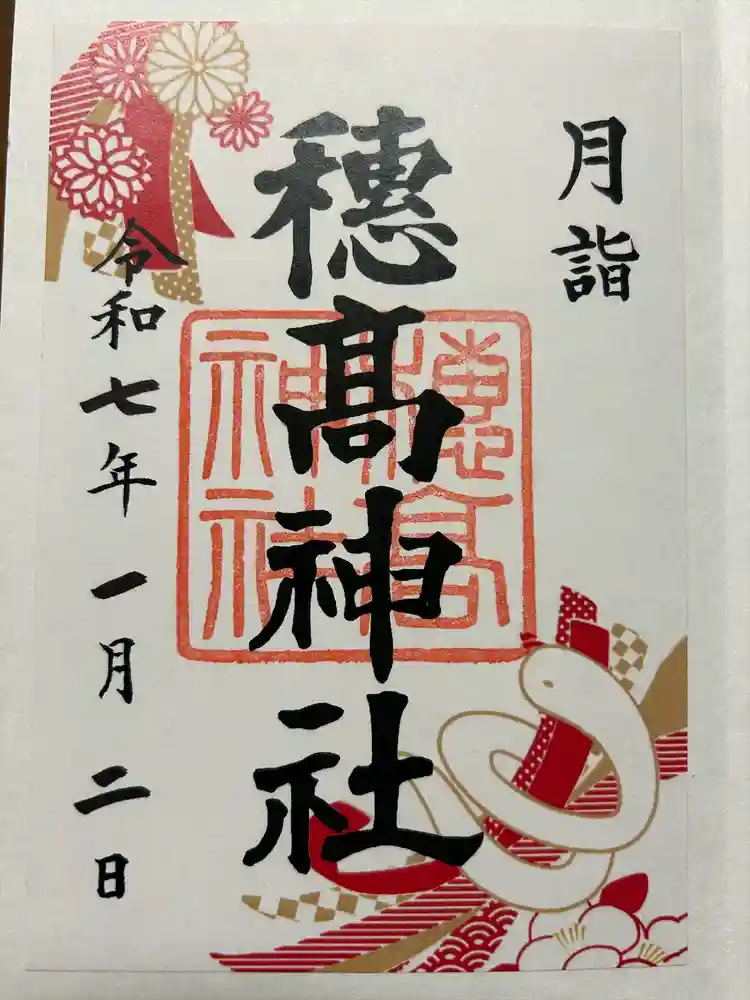 月詣
穗髙神社
穂高
神社
令和七年一月二日